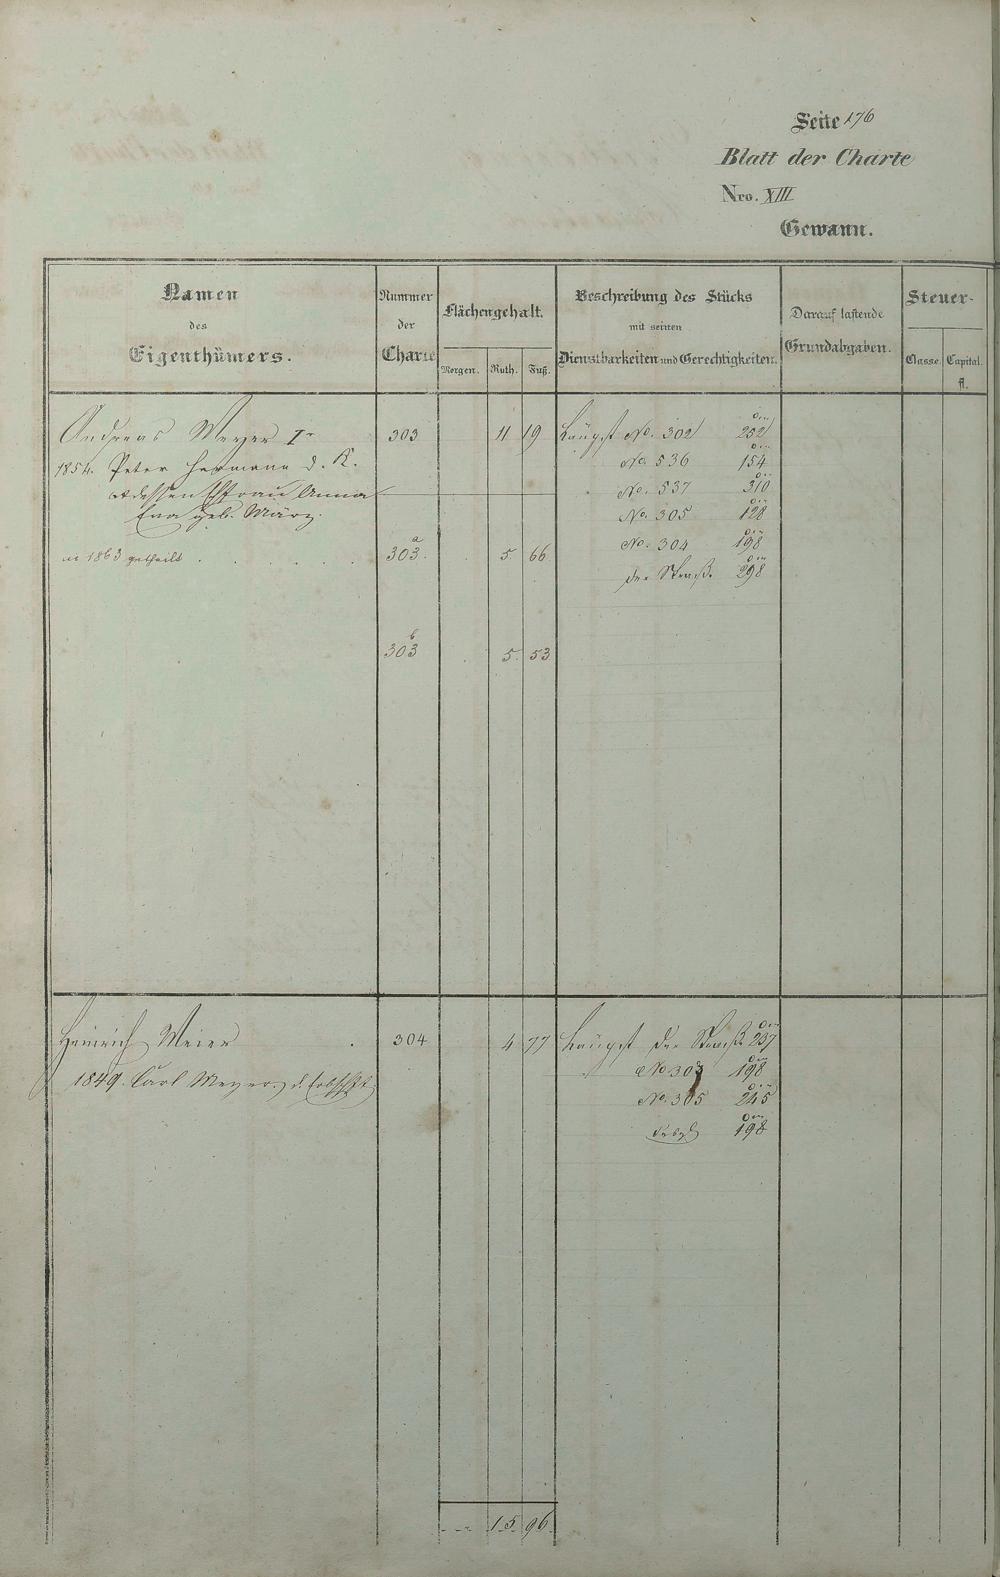 Seite 176
Blatt der Charte
Nro. XIII
Gewann.
Namen
des
Eigenthümers.
Nummer
der
Charte
Flächengehalt.
Morgen. Ruth. Fuß.
Beschreibung des Stücks
mit seinen
Dienstbarkeiten und Gerechtigkeiten.
Darauf lastende
Grundabgaben.
Steuer-
Classe. Capital.
fl.
Andreas Meyer Ir 303 11 19 Längst No. 302 252
1854. Peter Hermann d. K. No. 536 154
dessen Ehfrau Anna No. 537 310
Eva geb. März. No. 305 128
No. 304 198
in 1863 getheilt 303 a 5 66
der Straß. 298
303 b 5 53
Heinrich Meier 304 4 77 Längst der Straß. 237
1849. Carl Meyer, d. Erbschft No 303 198
No. 305 245
198
15 96